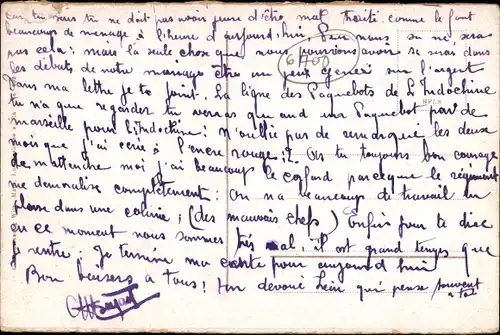 Car, tu sais tu ne doit pas avoir peur d'être mal traité comme le font
beaucoup de menage à l'heure d'aujourd'hui, pour nous sa ne sera
pas cela; mais la seule chose que nous pourrions avoir se serai dans
les débuts de notre mariage être un peux gener sur l'argent
Dans ma lettre je te joint. La ligne des Paquebots de L'Indochine
tu n'a que regarder tu verras quand un Paquebot par de
marseille pour l'indochine; N'oublie pas de remarque les deux
mois que j'ai écrie à l'encre rouge; ? As tu toujours bon courage
de m'attendre moi j'ai beaucoup le cafard parceque le régiment
me demoralise complètement: On a beaucoup de travail en
plus dans une colonie; (des mauvais chefs) Enfin pour te dire
en ce moment nous sommes très mal, il est grand temps que
je rentre; Je termine ma carte pour aujourd'hui
Bon baisers à tous! Ton devoué qui pense souvent
à toi
6700